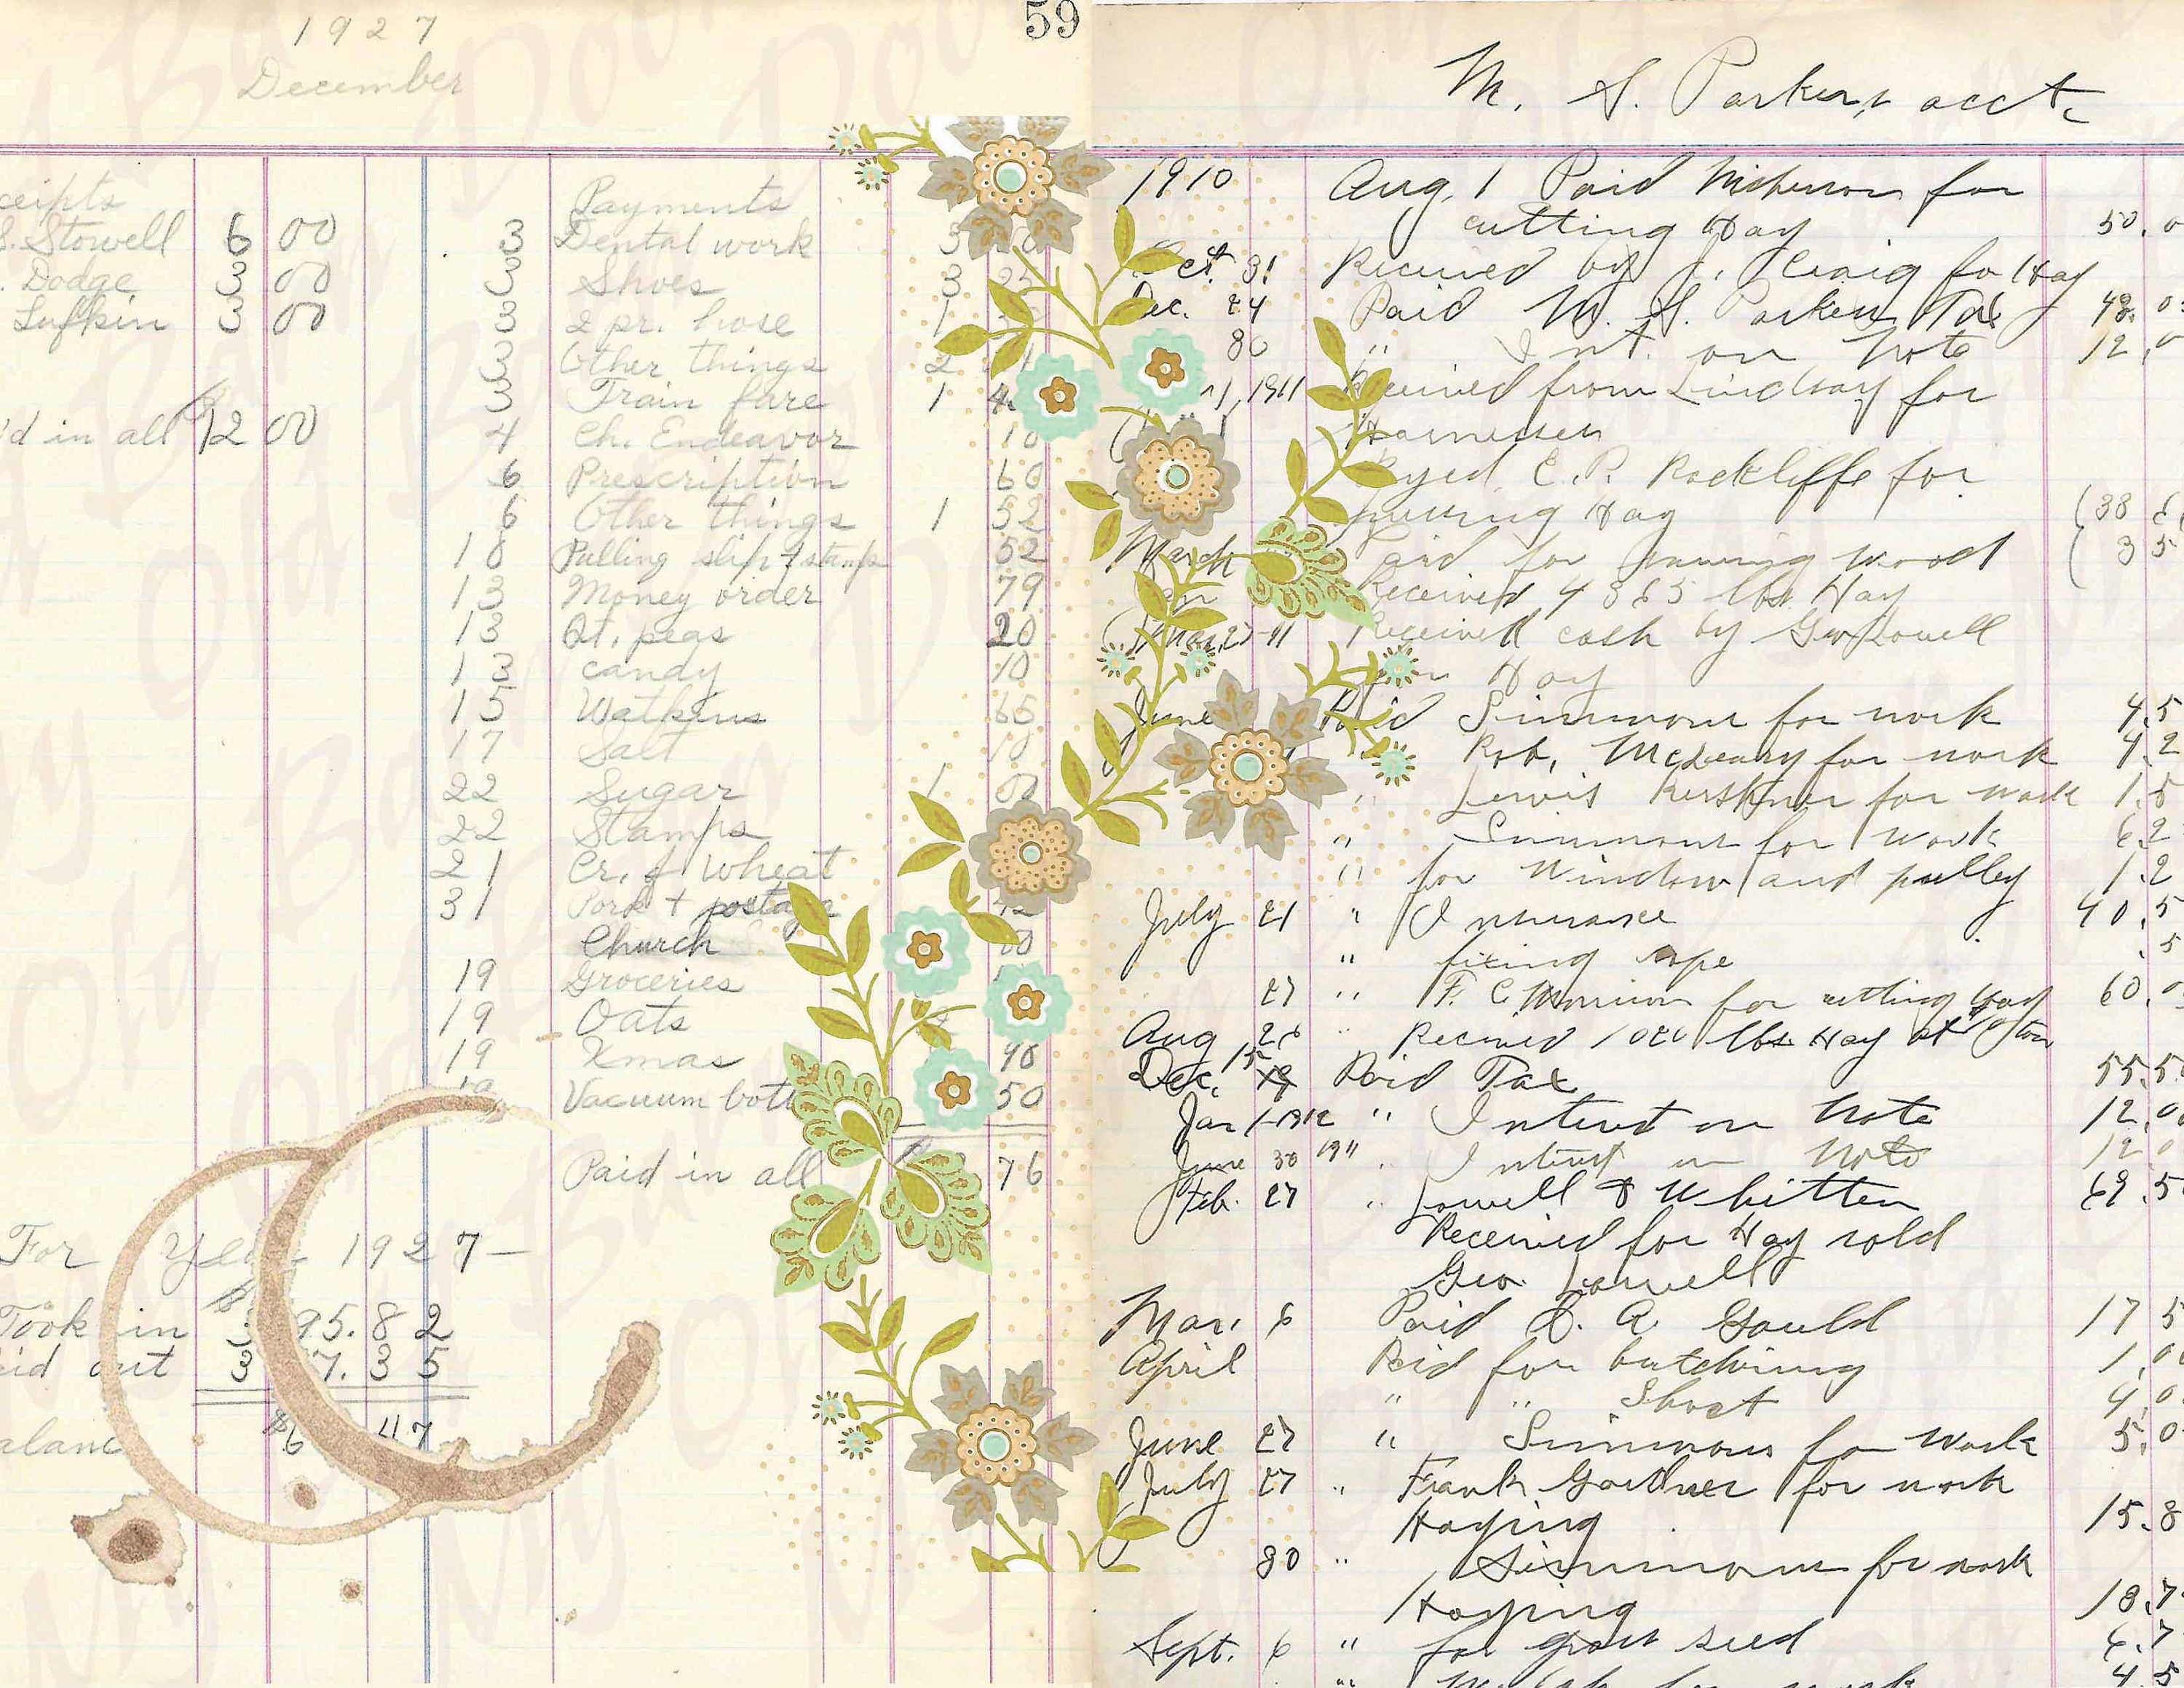 1927
59
December
ceipts
S. Stowell 6 00
. Dodge 3 00
Lufkin 3 00
'd in all 12 00
Payments
3 Dental work
3 Shoes 3 25
3 2 pr. hose 1
3 Other things 2
3 Train fare 1 4
4 Ch. Endeavor 10
6 Prescription 60
6 Other things 1 52
10 Pulling slip + stamps 52
13 Money order 79
13 Qt. peas 20
13 candy 10
15 Watkins 65
17 Salt 10
22 Sugar 1 00
22 Stamps
21 Cr. of Wheat
31 Pork + postage
Church
19 Groceries
19 Oats
19 Xmas 90
Vacuum bott 50
Paid in all 76
For Year 1927-
Took in 3 95.82
aid out 3 7.35
alanc $6 47
M. S. Parkers acct.
1910 Aug. 1 Paid Nickerson for
cutting Hay 50.0
Oct. 31 Received by J. Craig for Hay
Dec. 24 Paid M. S. Parkers Tax 48.0
30 " Int. on Note 12.0
1, 1911 ceived from Lindsay for
Harnesses
ayed E. P. Rackliffe for
Hay (38
March aid for sawing wood ( 3 5
Received 4365 lbs. Hay
Mar. 27-11 Received cash by Geo Lowell
Hay
June Paid Simmons for work 4.5
Rob. McLeary for work 4.2
" Lewis for work 1.5
" Simmons for work 6.2
" for Window and pulley 1.2
July 21 " Insurance 40.5
" fixing rope .5
27 " F. C. for cutting Hay 60.0
Aug 26 " Received lbs Hay at
Dec. 15 Paid Tax 55.5
Jan 1-1912 " Interest on Note 12.0
June 30 1911 " Interest on Note 12 0
Feb. 27 " Lowell & Whitten 69.5
Received for Hay sold
Geo. Lowell
Mar. 6 Paid A. Gould 17 5
April Paid for butchering 1.0
" " Shoat 4.0
June 27 " Simmons for work 5.0
July 27 " Frank Gardner for work
Haying 15.8
30 " Simmons for work
Haying 18.7
Sept. 6 " for grass seed 6.7
" for work 4 5